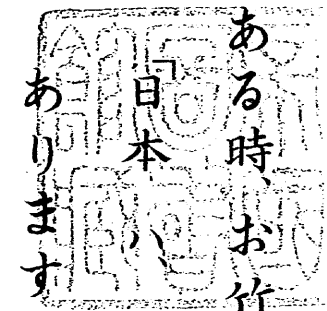 ある時、お竹
「日本ハ、
あります